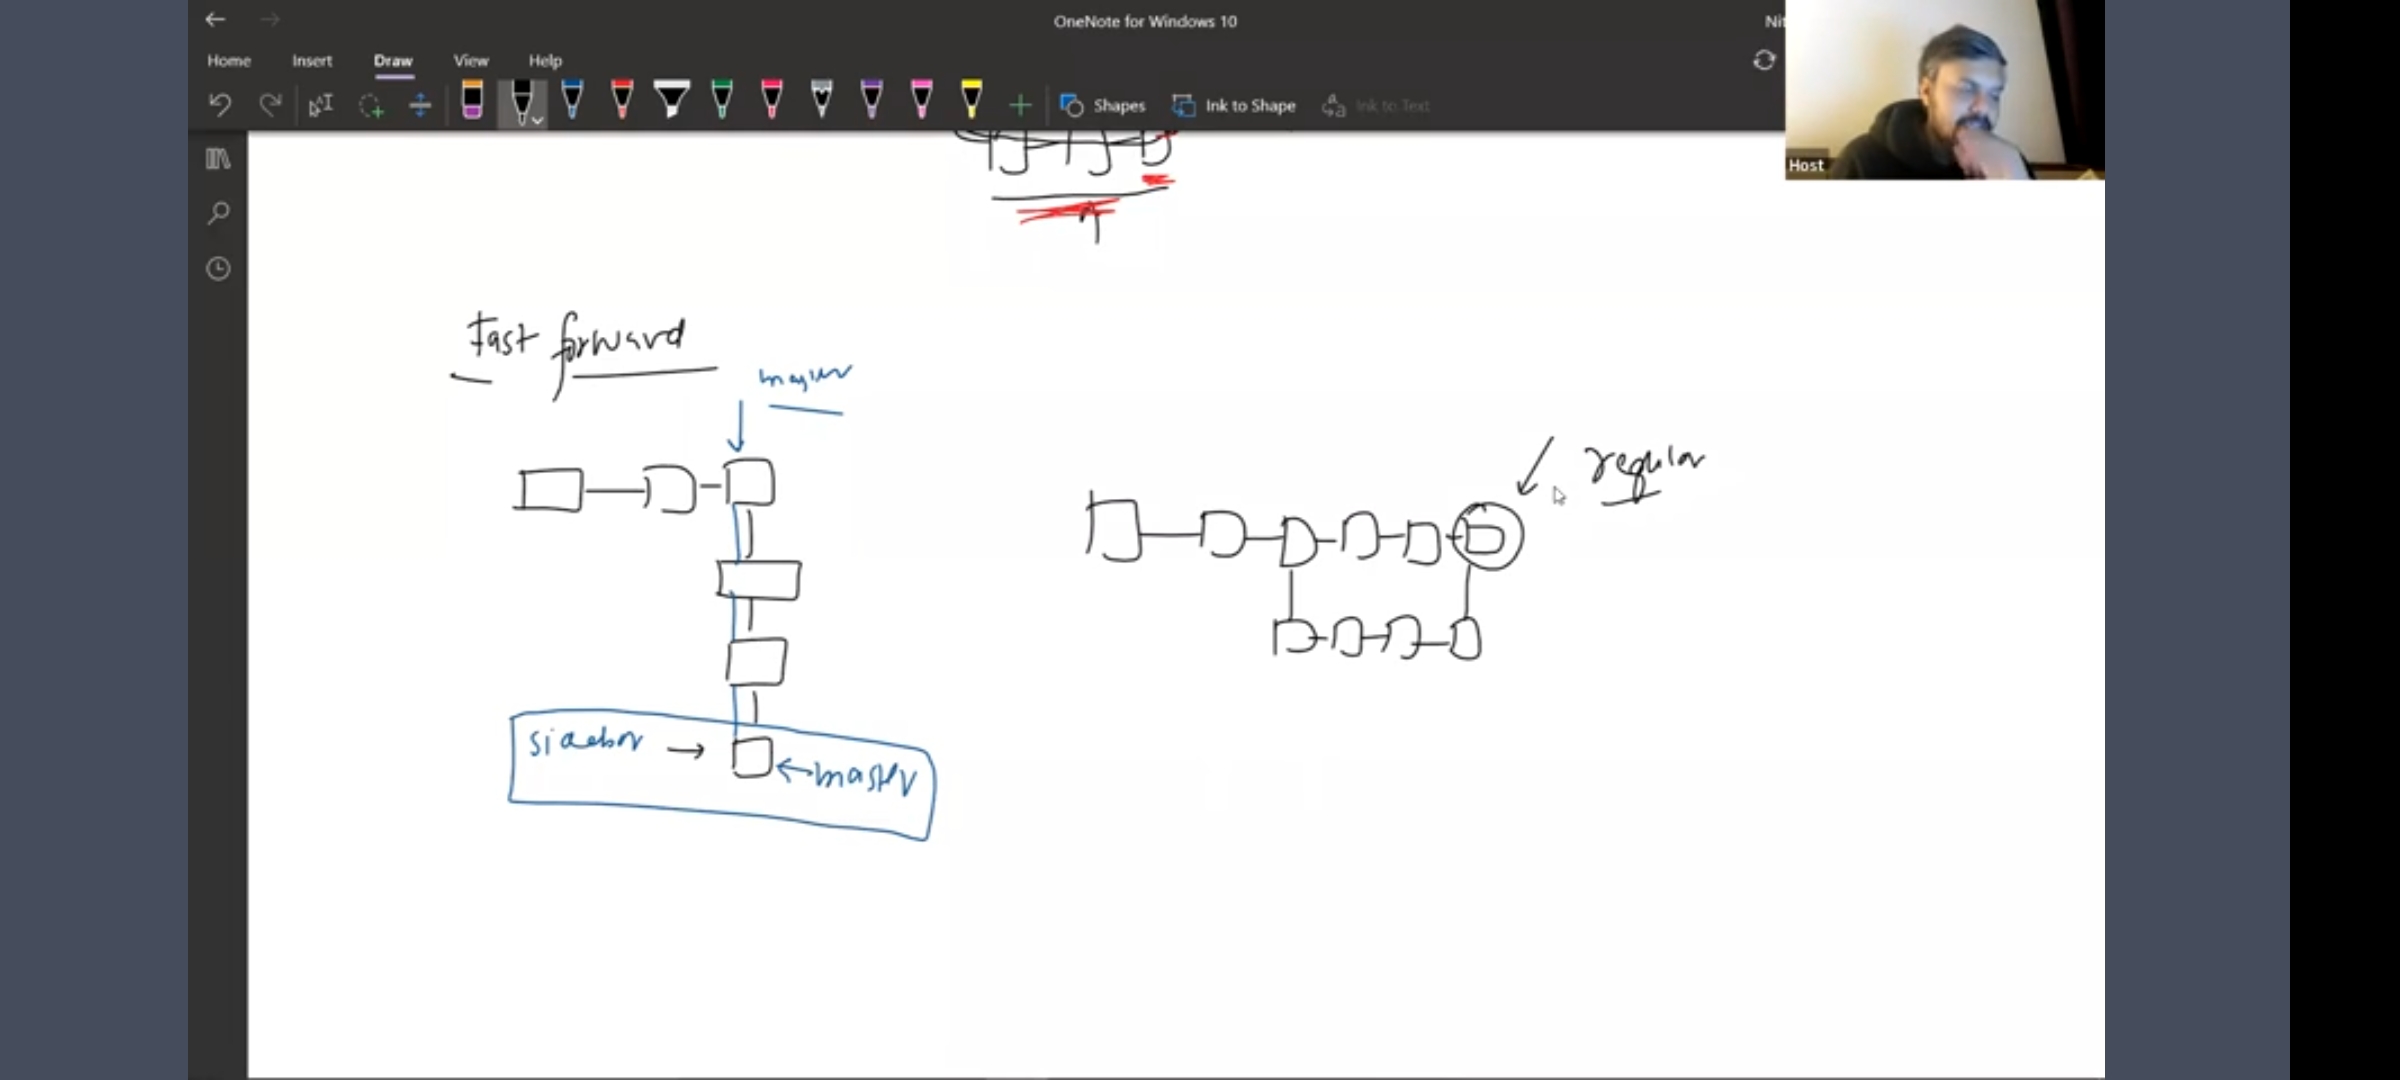 OneNote for Windows 10
Nit
Home Insert Draw View Help
Shapes Ink to Shape Ink to Text
Host
Fast forward
regular
master